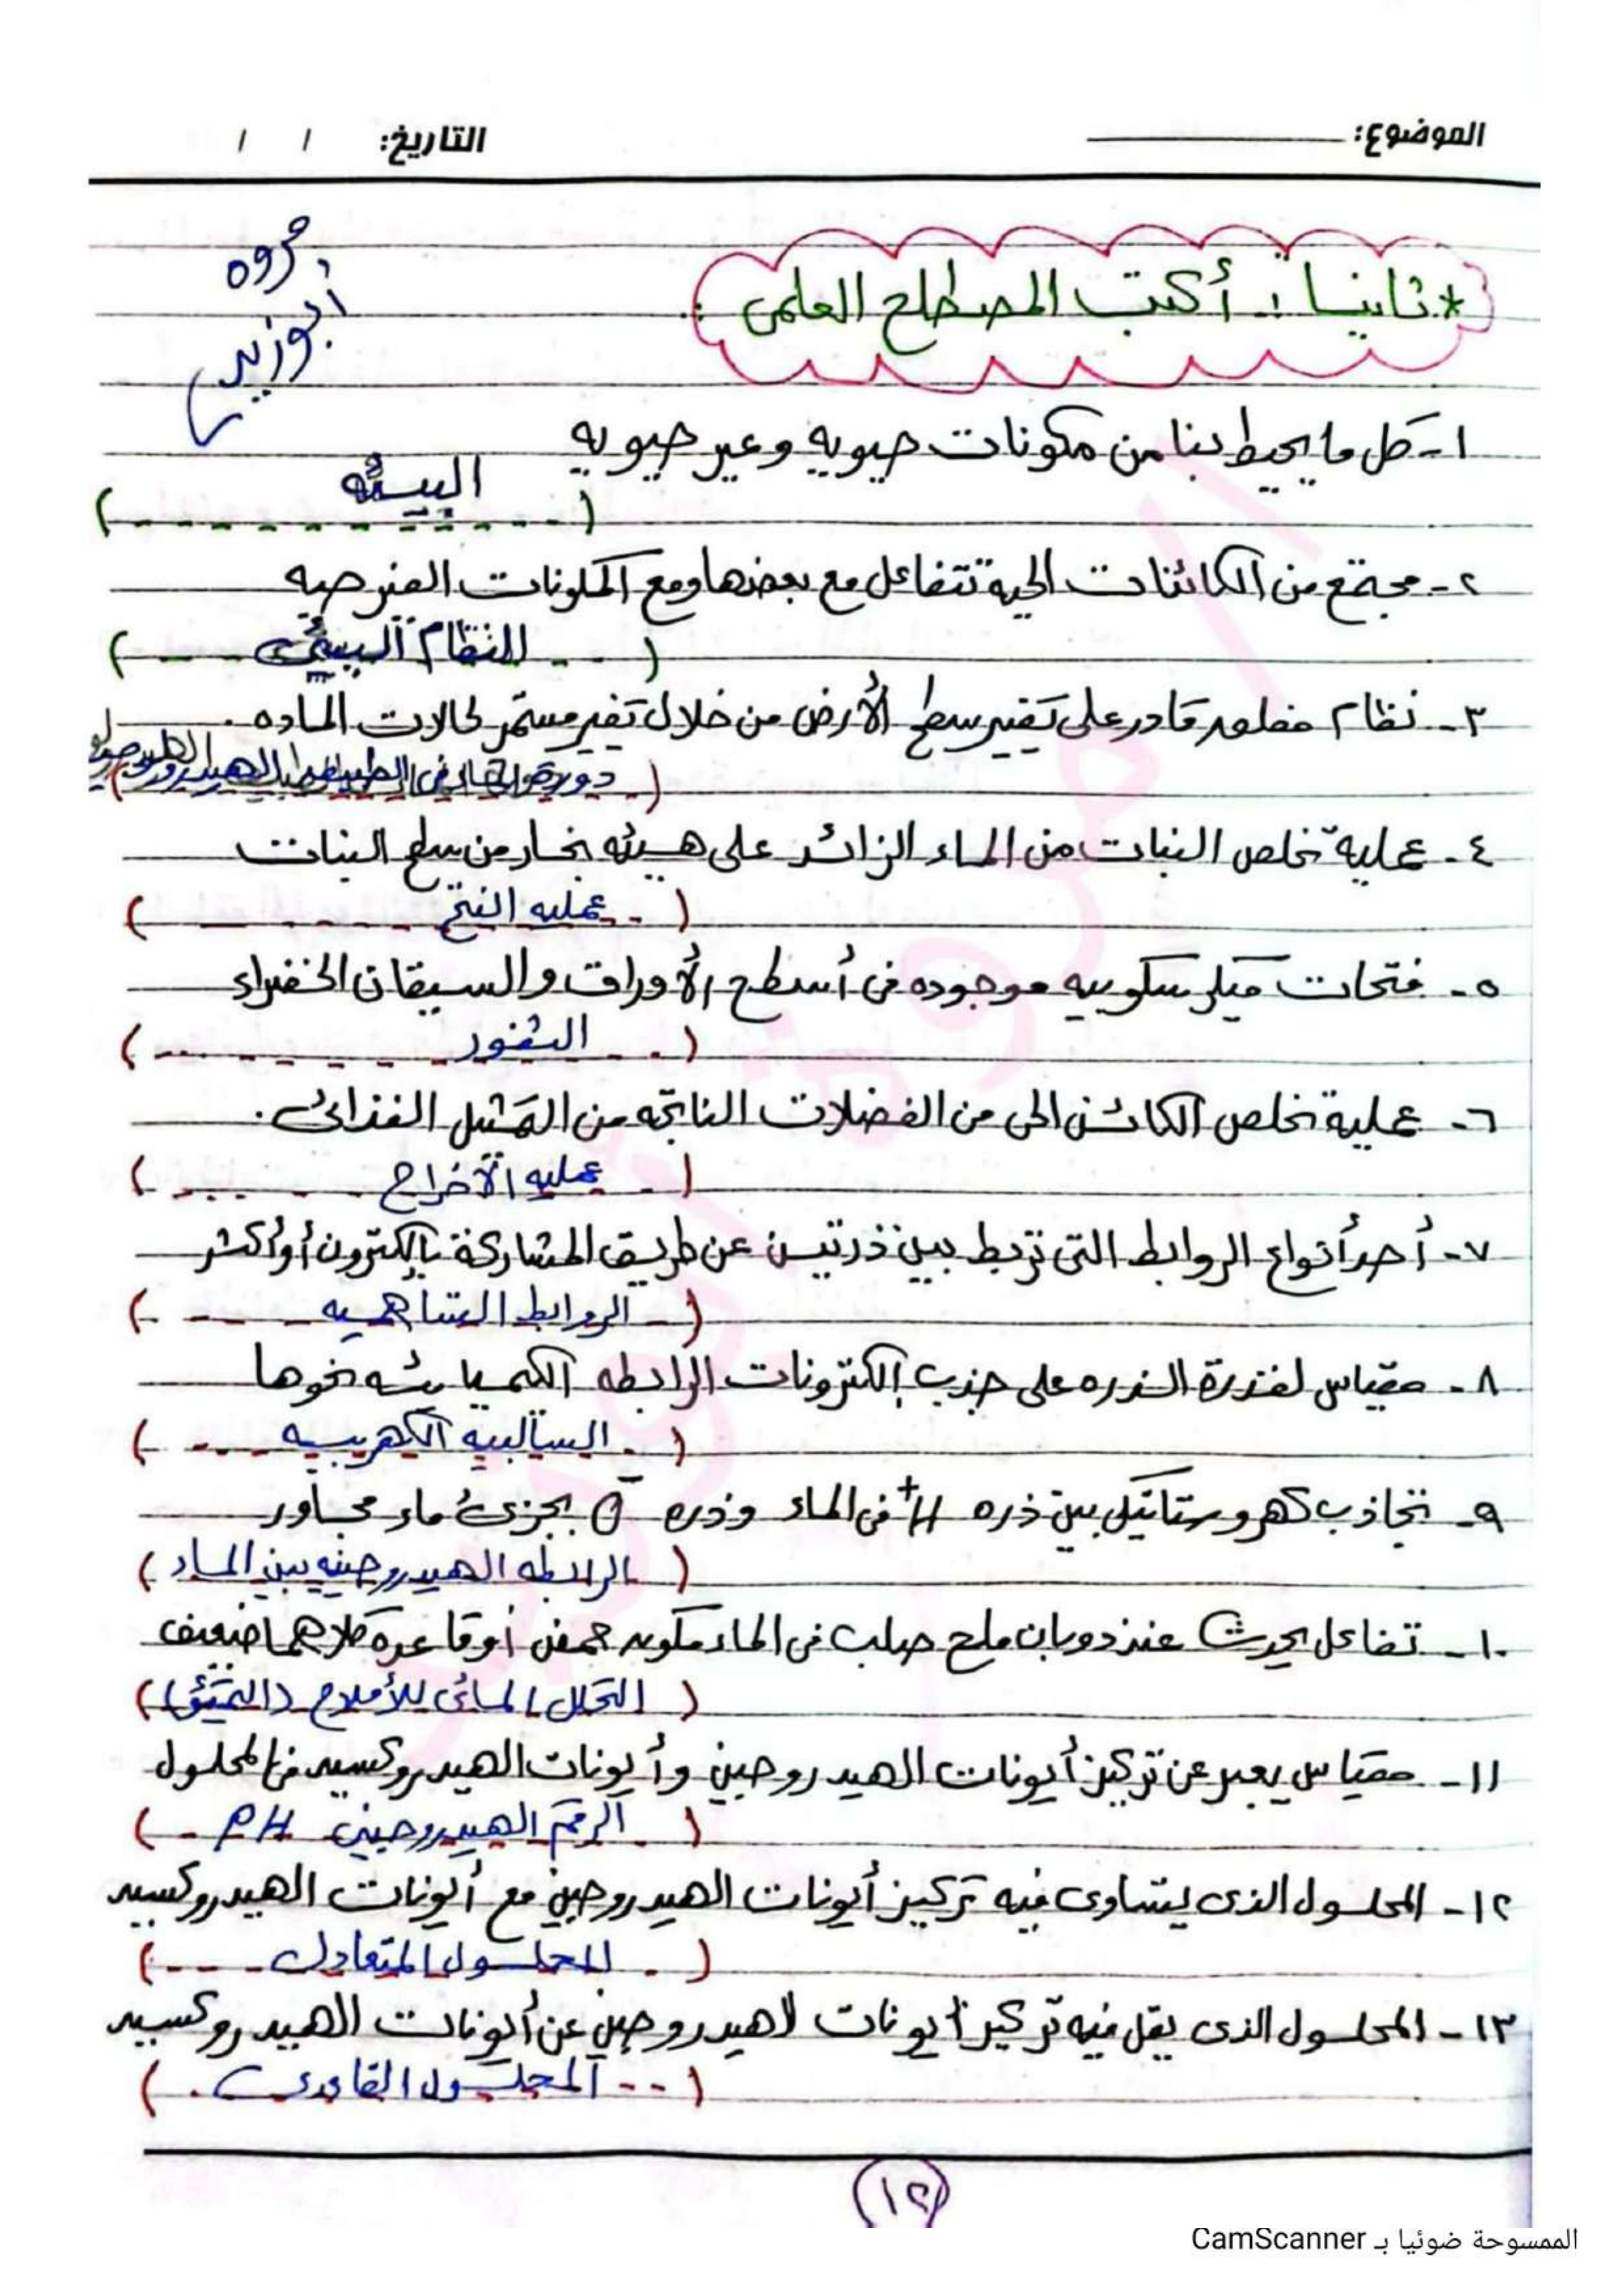 الموضوع: التاريخ: / /
مروه
أبوزيد
* ثانيا : أكتب المصطلح العلمى :
١- كل ما يحيط بنا من مكونات حيويه وغير حيويه
( البيئه )
٢- مجتمع من الكائنات الحية تتفاعل مع بعضها ومع المكونات الغير حيه
( النظام البيئى )
٣- نظام قادر على تغير سطح الأرض من خلال تغير مستمر لحالات الماده .
( دورة الماء فى الطبيعه )
٤- عملية تخلص النبات من الماء الزائد على هيئه بخار من سطح النبات
( عمليه النتح )
٥- فتحات ميكرسكوبيه موجوده فى أسطح الأوراق والسيقان الخضراء
( الثغور )
٦- عملية تخلص الكائن الحى من الفضلات الناتجه من التمثيل الغذائى .
( عمليه الأخراج )
٧- أحد أنواع الروابط التى تربط بين ذرتين عن طريق المشاركة بإلكترون أو أكثر
( الروابط التساهميه )
٨- مقياس لقدرة الذره على جذب إلكترونات الرابطه الكميائيه نحوها
( السالبيه الكهربيه )
٩- تجاذب كهروستاتيكى بين ذره H+ فى الماء وذره O- بجزئ ماء مجاور
( الرابطه الهيدروجينيه بين الماء )
١٠- تفاعل يحدث عند دوبان ملح صلب فى الماء مكونه حمض أو قاعدة كلاهما ضعيف
( التحلل المائى للأملاح (التميؤ) )
١١- مقياس يعبر عن تركيز أيونات الهيدروجين وأيونات الهيدروكسيد فى المحلول
( الرقم الهيدروجينى PH )
١٢- المحلول الذى يتساوى فيه تركيز أيونات الهيدروجين مع أيونات الهيدروكسيد
( المحلول المتعادل )
١٣- المحلول الذى يقل فيه تركيز أيونات لاهيدروجين عن أيونات الهيدروكسيد
( المحلول القاعدى )
١٢
الممسوحة ضوئيا بـ CamScanner